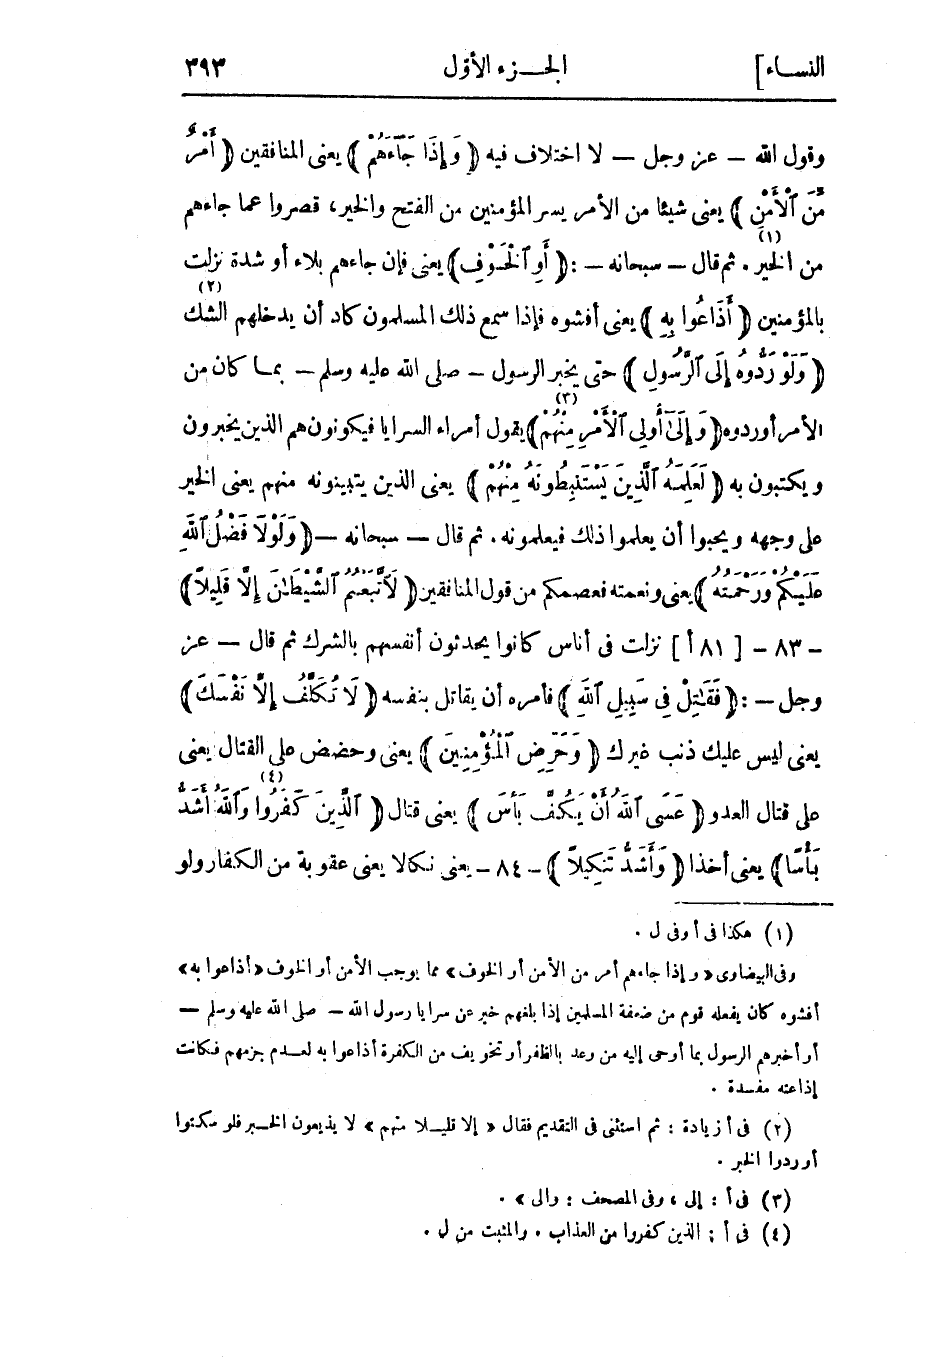 النساء] الجزء الأول ٣٩٣
وقول الله — عز وجل — لا اختلاف فيه ﴿ وَإِذَا جَآءَهُمْ ﴾ يعنى المنافقين ﴿ أَمْرٌ
مِّنَ ٱلْأَمْنِ ﴾ يعنى شيئا من الأمر يسر المؤمنين من الفتح والخير، قصروا عما جاءهم
من الخير (١) . ثم قال — سبحانه — : ﴿ أَوِ ٱلْخَوْفِ ﴾ يعنى فإن جاءهم بلاء أو شدة نزلت
بالمؤمنين ﴿ أَذَاعُوا بِهِ ﴾ يعنى أفشوه فإذا سمع ذلك المسلمون كاد أن يدخلهم الشك (٢)
﴿ وَلَوْ رَدُّوهُ إِلَى ٱلرَّسُولِ ﴾ حتى يخبر الرسول — صلى الله عليه وسلم — بما كان من
الأمر أوردوه ﴿ وَإِلَىٰٓ أُولِى ٱلْأَمْرِ (٣) مِنْهُمْ ﴾ يقول أمراء السرايا فيكونون هم الذين يخبرون
ويكتبون به ﴿ لَعَلِمَهُ ٱلَّذِينَ يَسْتَنۢبِطُونَهُ مِنْهُمْ ﴾ يعنى الذين يتبينونه منهم يعنى الخير
على وجهه ويحبوا أن يعلموا ذلك فيعلمونه . ثم قال — سبحانه — ﴿ وَلَوْلَا فَضْلُ ٱللَّهِ
عَلَيْكُمْ وَرَحْمَتُهُ ﴾ يعنى ونعمته فعصمكم من قول المنافقين ﴿ لَٱتَّبَعْتُمُ ٱلشَّيْطَـٰنَ إِلَّا قَلِيلًا ﴾
— ٨٣ — [ ٨١ أ ] نزلت فى أناس كانوا يحدثون أنفسهم بالشرك ثم قال — عز
وجل — : ﴿ فَقَـٰتِلْ فِى سَبِيلِ ٱللَّهِ ﴾ فأمره أن يقاتل بنفسه ﴿ لَا تُكَلَّفُ إِلَّا نَفْسَكَ ﴾
يعنى ليس عليك ذنب غيرك ﴿ وَحَرِّضِ ٱلْمُؤْمِنِينَ ﴾ يعنى وحضض على القتال يعنى
على قتال العدو ﴿ عَسَى ٱللَّهُ أَنْ يَكُفَّ بَأْسَ ﴾ يعنى قتال ﴿ ٱلَّذِينَ كَفَرُوا (٤) وَٱللَّهُ أَشَدُّ
بَأْسًا ﴾ يعنى أخذا ﴿ وَأَشَدُّ تَنكِيلًا ﴾ — ٨٤ — يعنى نكالا يعنى عقوبة من الكفار ولو
(١) هكذا فى أ وفى ل .
وفى البيضاوى « وإذا جاءهم أمر من الأمن أو الخوف » مما يوجب الأمن أو الخوف « أذاعوا به »
أفشوه كان يفعله قوم من ضعفة المسلمين إذا بلغهم خبر عن سرايا رسول الله — صلى الله عليه وسلم —
أو أخبرهم الرسول بما أوحى إليه من وعد بالظفر أو تخويف من الكفرة أذاعوا به لعدم جزمهم فكانت
إذاعته مفسدة .
(٢) فى أ زيادة : ثم استثنى فى التقديم فقال « إلا قليلا منهم » لا يذيعون الخبر فلو سكتوا
أو ردوا الخبر .
(٣) فى أ : إلى ، وفى المصحف : والى » .
(٤) فى أ : الذين كفروا من العذاب . والمثبت من ل .